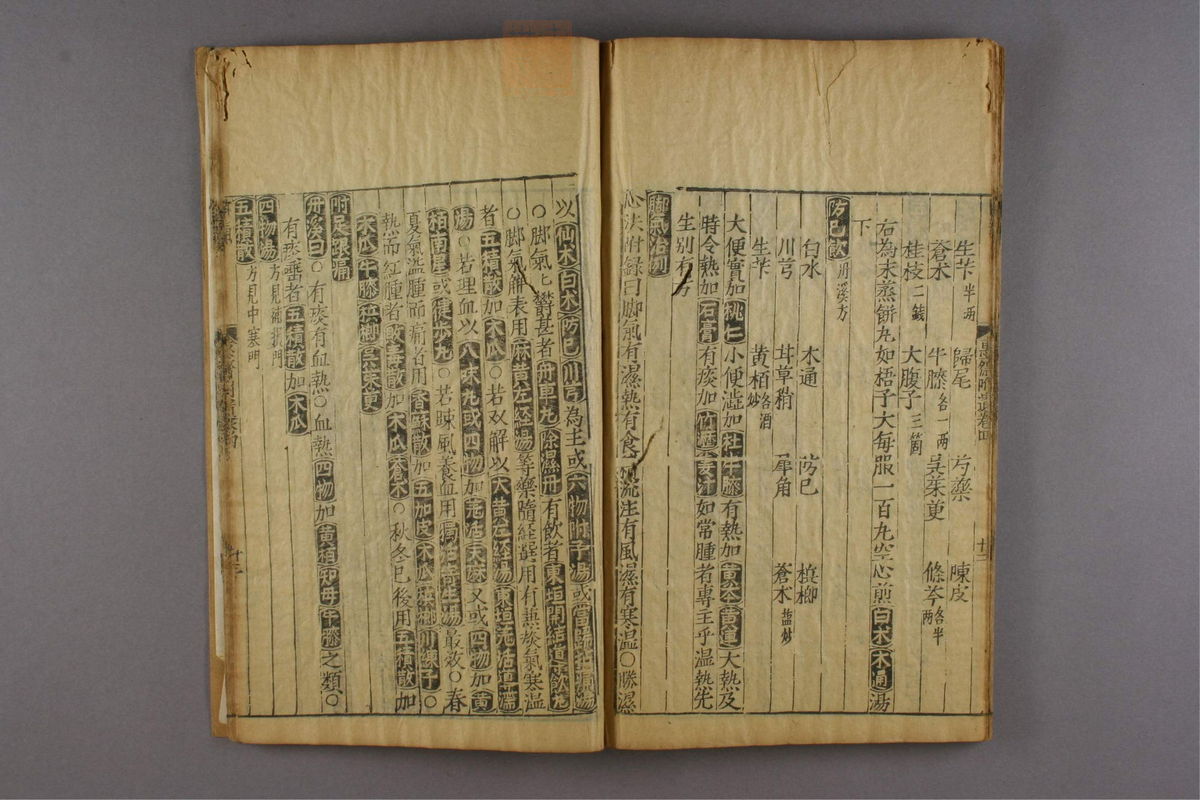 生芐半兩　歸尾　芍藥　陳皮
蒼朮　牛膝各一兩　吳茱萸　條芩各半兩
桂枝二錢　大腹子三箇
右為末蒸餅丸如梧子大每服一百丸空心煎白朮木通湯
下
防巳飲丹溪方
白朮　木通　防巳　檳榔
川芎　甘草稍　犀角　蒼朮盐炒
生芐　黃栢各酒炒
大便實加桃仁小便澁加杜牛膝有熱加黃芩黃連大熱及
時令熱加石膏有痰加竹瀝姜汁如常腫者專主乎温熱先
生别有方
脚氣治例
心法附錄曰脚氣有濕熱有食積流注有風濕有寒温○勝濕
以仙朮白朮防巳川芎為主或六物附子湯或當歸拈痛湯
○脚氣七欝甚者舟車丸除濕丹有飲者東垣開結導飲丸
○脚氣觧表用麻黃左經湯等藥隨經選用有熱痰氣寒温
者五積散加木瓜○若双解以大黃左經湯東垣羌活導滯
湯○若理血以八味丸或四物加羌活天麻又或四物加黃
栢南星或健步丸○若踈風養血用獨活寄生湯最効○春
夏氣溢腫而痛者用香蘇散加五加皮木瓜檳榔川練子○
熱而紅腫者敗毒散加木瓜蒼朮○秋冬巳後用五積散加
木瓜牛膝檳榔吳茱萸
附足跟痛
丹溪曰○有痰有血熱○血熱四物加黃栢知母牛膝之類○
有痰審者五積散加木瓜
四物湯方見補損門
五積散方見中寒門
十三